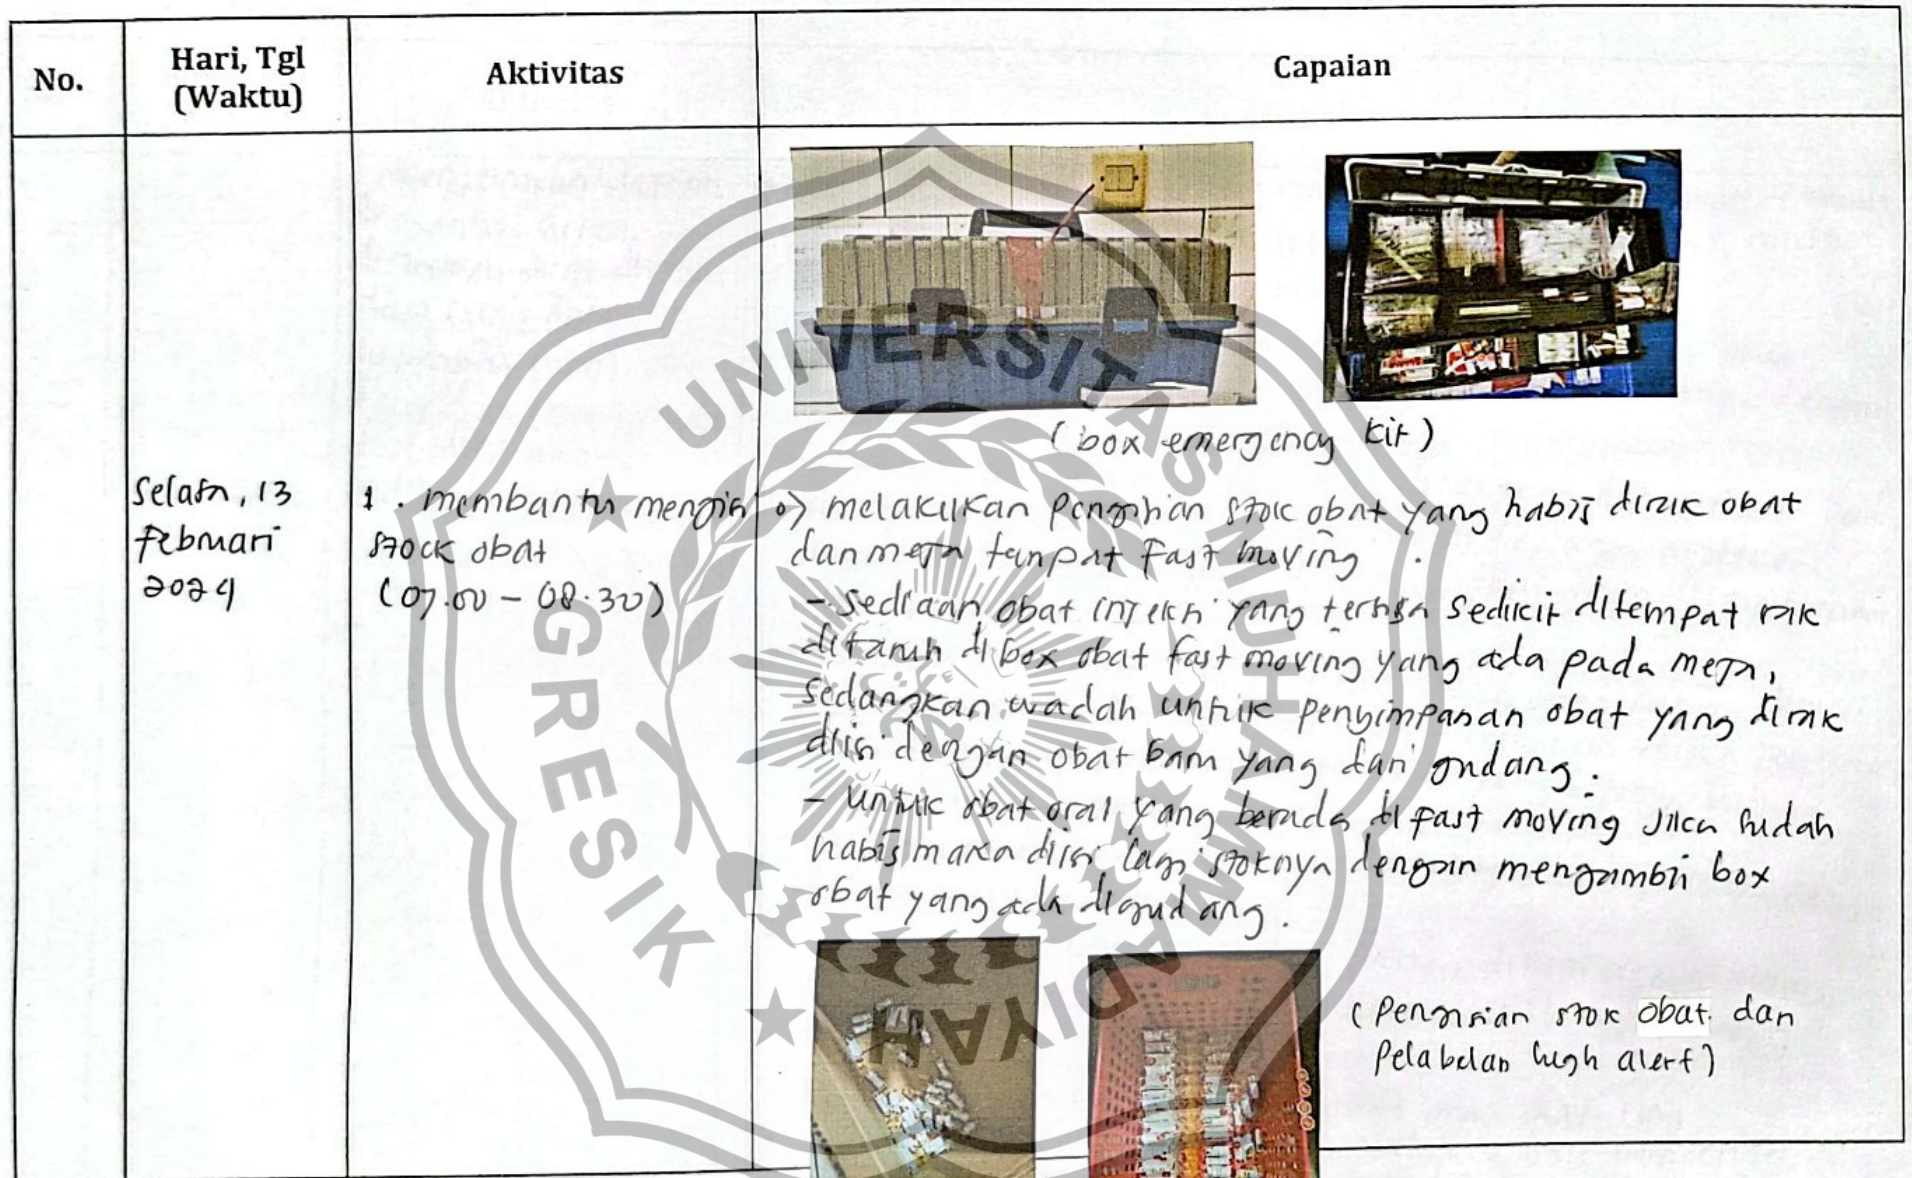 No.
Hari, Tgl
(Waktu)
Aktivitas
Capaian
(box emergency kit)
Selasa, 13
Februari
2024
1. membantu mengisi
stock obat
(07.00 - 08.30)
o> melakukan pengisian stok obat yang habis dirak obat
dan meja tempat fast moving.
- Sediaan obat injeksi yang tersisa sedikit ditempat rak
ditaruh dibox obat fast moving yang ada pada meja,
sedangkan wadah untuk penyimpanan obat yang dirak
diisi dengan obat baru yang dari gudang.
- untuk obat oral yang berada di fast moving jika sudah
habis maka diisi lagi stoknya dengan mengambil box
obat yang ada digudang.
(Pengisian stok obat dan
Pelabelan high alert)
UNIVERSITAS MUHAMMADIYAH
GRESIK